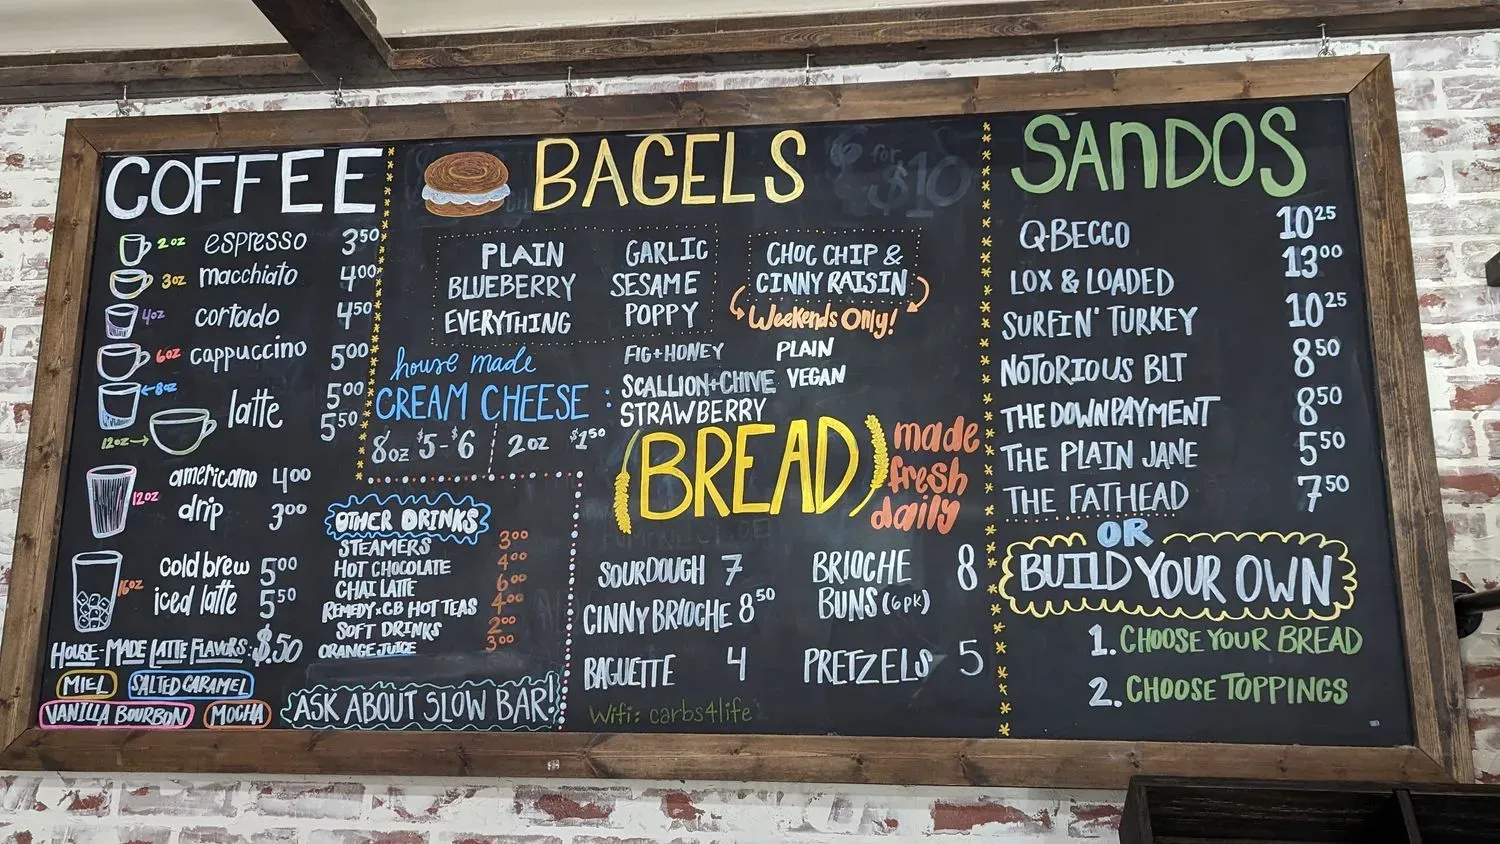 COFFEE
2oz espresso 3.50
3oz macchiato 4.00
4oz cortado 4.50
6oz cappuccino 5.00
←8oz latte 5.00
12oz→ 5.50
12oz americano 4.00
drip 3.00
16oz cold brew 5.00
iced latte 5.50
HOUSE-MADE LATTE FLAVORS: $.50
MIEL SALTED CARAMEL
VANILLA BOURBON MOCHA
BAGELS
for
$10
PLAIN GARLIC
BLUEBERRY SESAME
EVERYTHING POPPY
CHOC CHIP &
CINNY RAISIN
Weekends Only!
house made
CREAM CHEESE :
8oz $5-$6 2oz $1.50
FIG+HONEY PLAIN
SCALLION+CHIVE VEGAN
STRAWBERRY
OTHER DRINKS
STEAMERS 3.00
HOT CHOCOLATE 4.00
CHAI LATTE 6.00
REMEDY.CB HOT TEAS 4.00
SOFT DRINKS 2.00
ORANGE JUICE 3.00
ASK ABOUT SLOW BAR!
BREAD
made
fresh
daily
SOURDOUGH 7
CINNY BRIOCHE 8.50
BAGUETTE 4
BRIOCHE 8
BUNS (6pk)
PRETZELS 5
Wifi: carbs4life
SANDOS
Q-BECCO 10.25
LOX & LOADED 13.00
SURFIN' TURKEY 10.25
NOTORIOUS BLT 8.50
THE DOWNPAYMENT 8.50
THE PLAIN JANE 5.50
THE FATHEAD 7.50
OR
BUILD YOUR OWN
1. CHOOSE YOUR BREAD
2. CHOOSE TOPPINGS